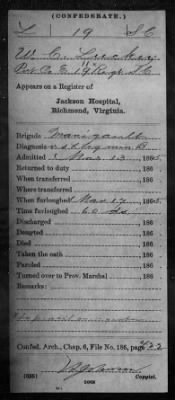 (CONFEDERATE.)
L 19 S C
W. C.
Pvt Co. E 19 Regt S.C.
Appears on a Register of
Jackson Hospital,
Richmond, Virginia.
Brigade Manigault
Diagnosis
Admitted Mar. 13, 1865.
Returned to duty , 186
When transferred , 186
Where transferred
When furloughed Mar. 17, 1865.
Time furloughed 60 ds
Discharged , 186
Deserted , 186
Died , 186
Took the oath , 186
Paroled , 186
Turned over to Prov. Marshal , 186
Remarks:
Confed. Arch., Chap. 6, File No. 186, page 422
(635)
Copyist.